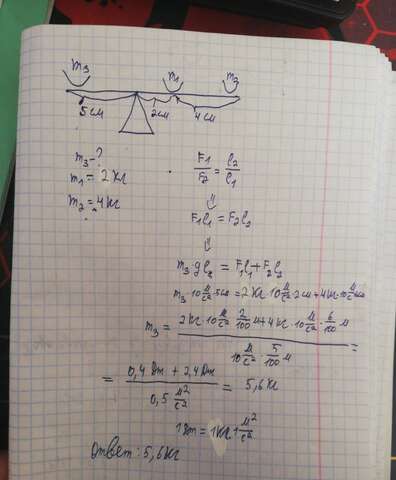 m₃ m₁ m₂
5 см 2 см 4 см
m₃ - ?
m₁ = 2 кг
m₂ = 4 кг
F₁/F₂ = l₂/l₁
⇓
F₁l₁ = F₂l₂
⇓
m₃·gl₃ = F₁l₁ + F₂l₂
m₃·10 м/с²·5см = 2 кг·10 м/с²·2 см + 4 кг·10 м/с²
m₃ = (2 кг·10 м/с²·2/100 м + 4 кг·10 м/с²·6/100 м) / (10 м/с²·5/100 м) =
= (0,4 Дж + 2,4 Дж) / (0,5 м²/с²) = 5,6 кг
1 Дж = 1 кг·1 м²/с²
Ответ: 5,6 кг